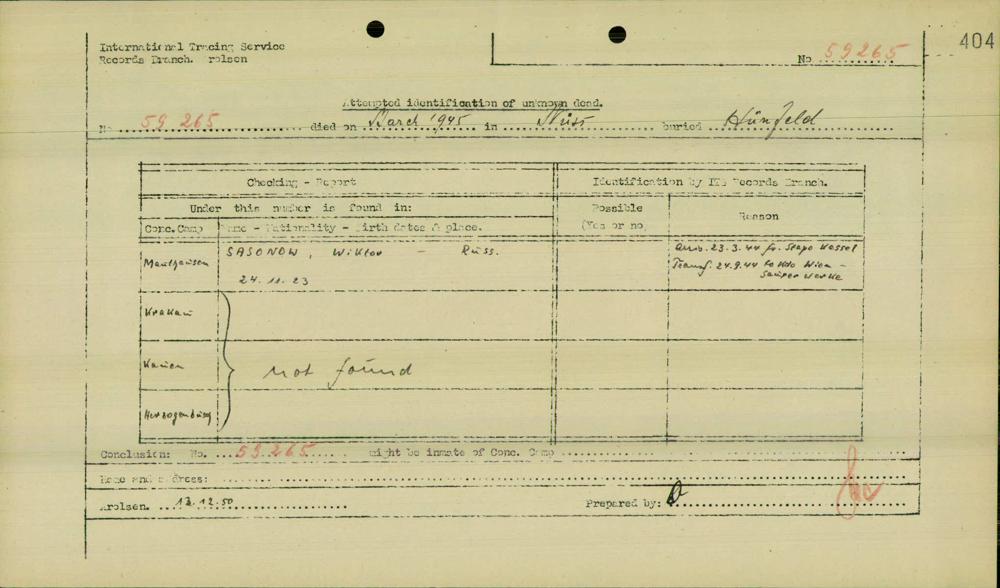 404
International Tracing Service
Records Branch. rolsen
No 59265
Attempted identification of unknown dead.
No 59 265 died on March 1945 in Nüst buried Hünfeld
Checking - Report
Identification by ITS Records Branch.
Under this number is found in:
Possible
(Yes or no)
Reason
Conc. Camp
Name - Nationality - Birth dates & place.
Mauthausen
SASONOW, Wiktor - Russ.
24.11.23
arriv. 23.3.44 fr. Stapo Kassel
Transf. 24.9.44 to Kdo Wien -
Saurer Werke
Krakau
Kauen
not found
Herzogenbusch
Conclusion: No. 59 265 might be inmate of Conc. Camp
Name and address:
Arolsen. 13.12.50
Prepared by: